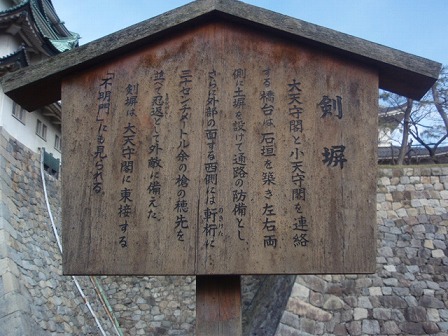 剣塀
大天守閣と小天守閣を連絡
する橋台は、石垣を築き左右両
側に土塀を設けて通路の防備とし、
さらに外部の面する西側には軒桁に
のきけた
三十センチメートル余の槍の穂先を
並べて忍返とし外敵に備えた。
剣塀は、大天守閣の東接する
「不明門」にも見られる。